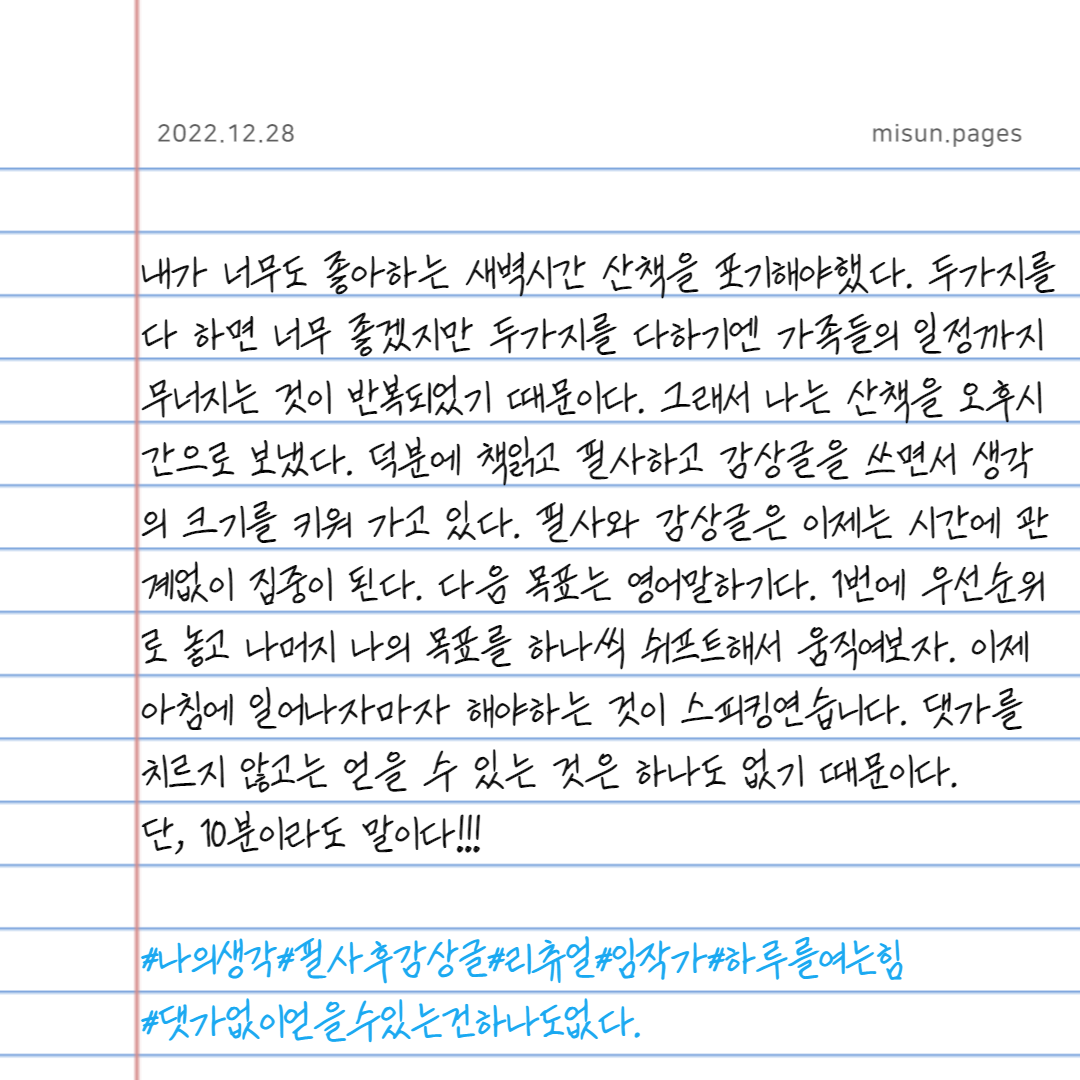 2022.12.28
misun.pages
내가 너무도 좋아하는 새벽시간 산책을 포기해야했다. 두가지를
다 하면 너무 좋겠지만 두가지를 다하기엔 가족들의 일정까지
무너지는 것이 반복되었기 때문이다. 그래서 나는 산책을 오후시
간으로 보냈다. 덕분에 책읽고 필사하고 감상글을 쓰면서 생각
의 크기를 키워 가고 있다. 필사와 감상글은 이제는 시간에 관
계없이 집중이 된다. 다음 목표는 영어말하기다. 1번에 우선순위
로 놓고 나머지 나의 목표를 하나씩 쉬프트해서 움직여보자. 이제
아침에 일어나자마자 해야하는 것이 스피킹연습니다. 댓가를
치르지 않고는 얻을 수 있는 것은 하나도 없기 때문이다.
단, 10분이라도 말이다!!!
#나의생각#필사후감상글#리츄얼#임작가#하루를여는힘
#댓가없이얻을수있는건하나도없다.